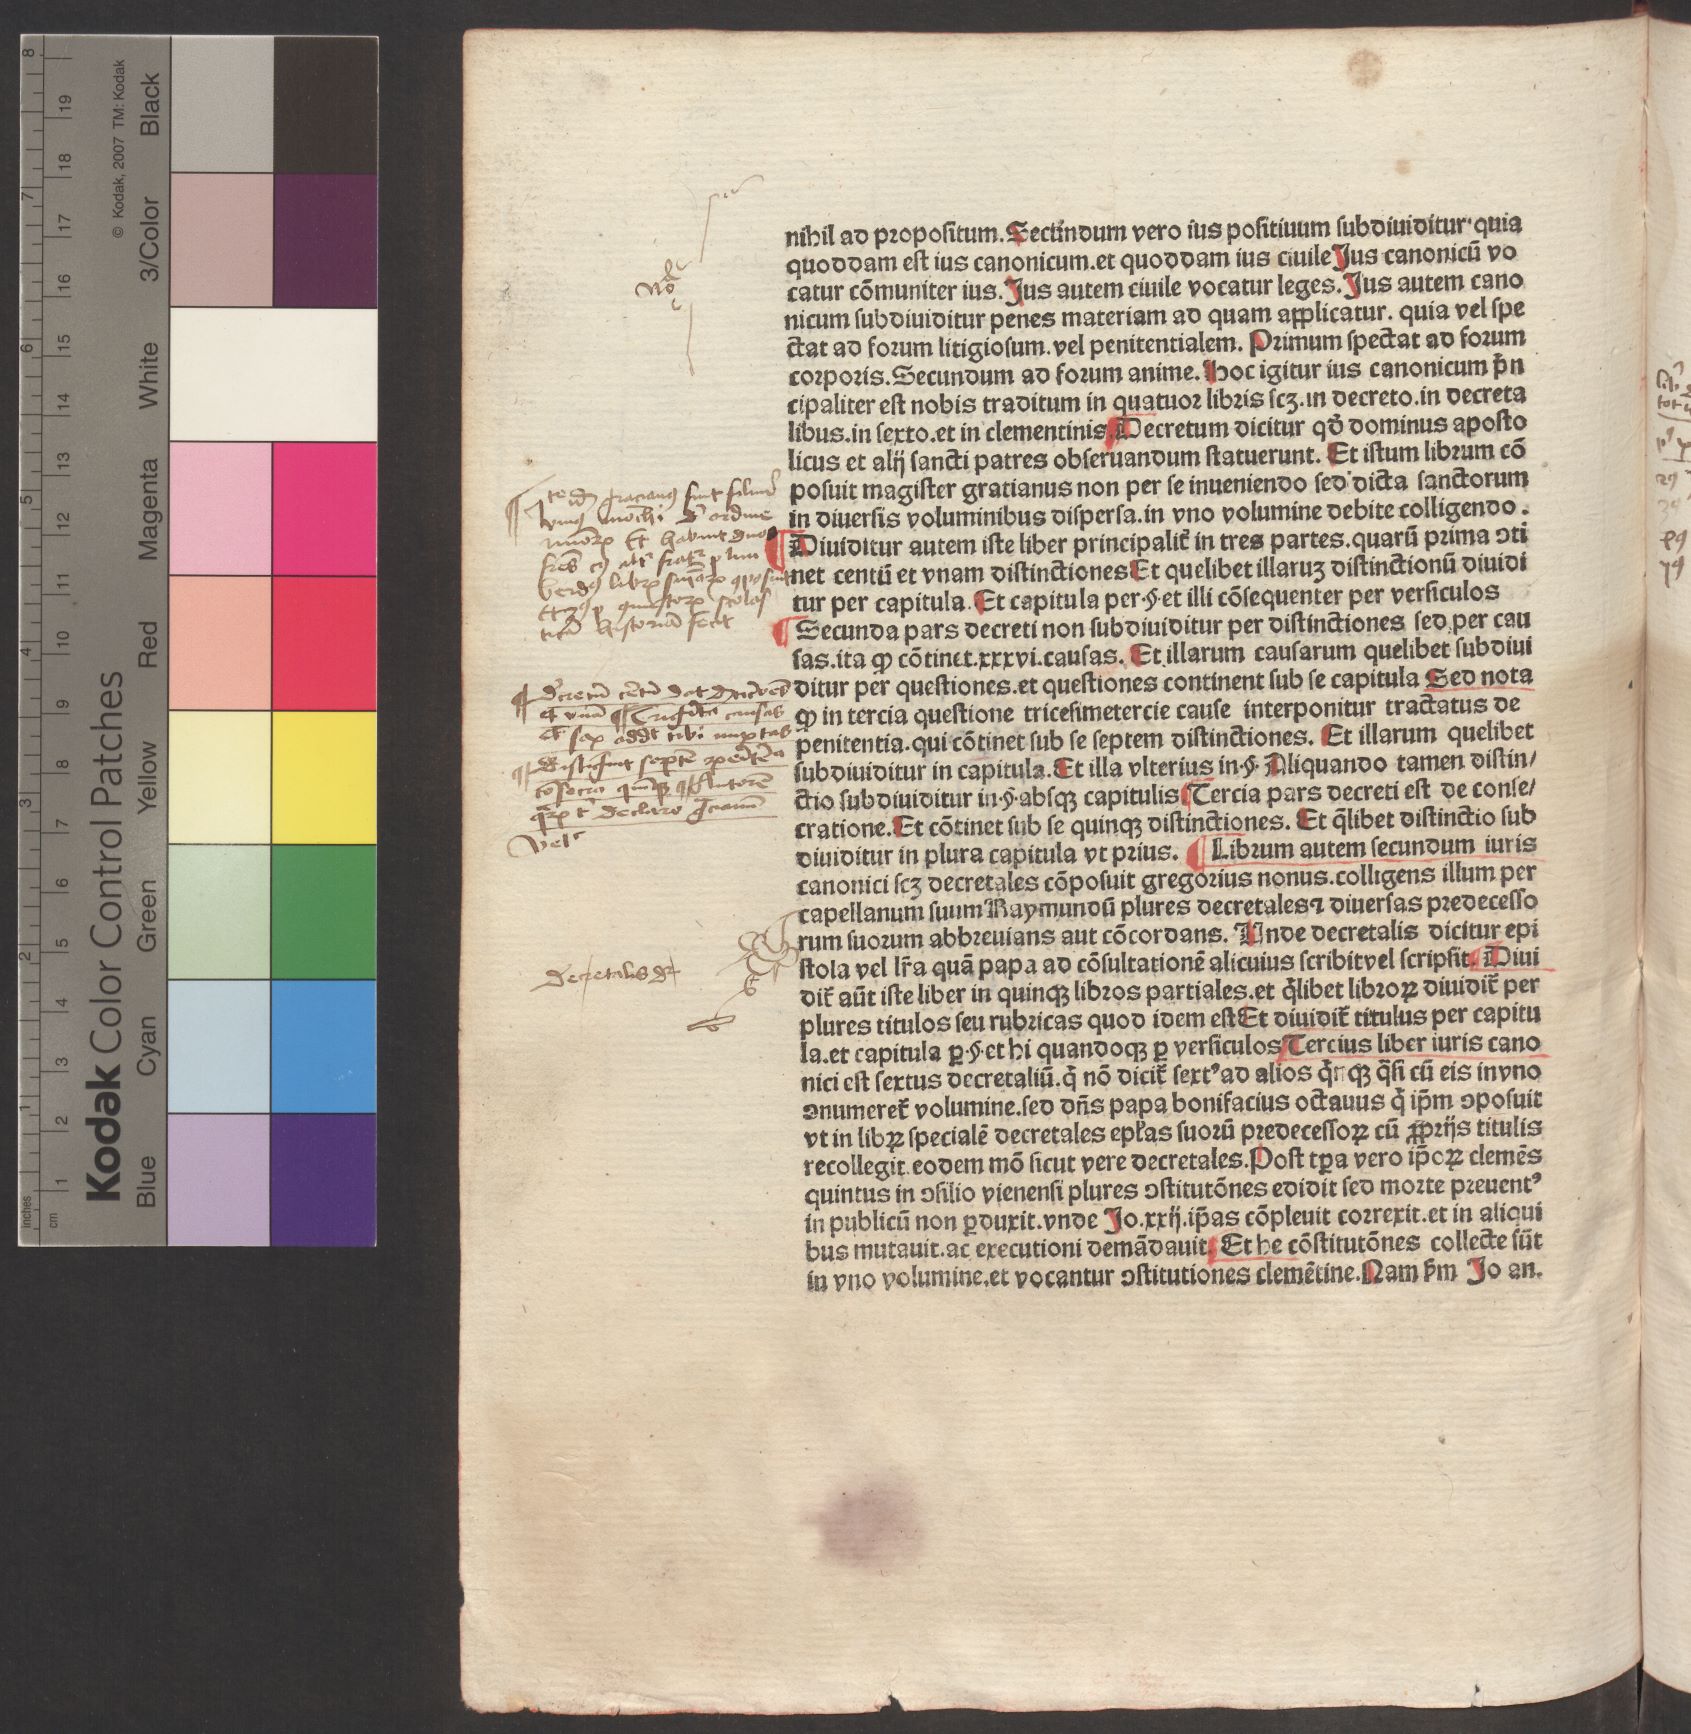 nihil ad propositum. Secundum vero ius positiuum subdiuiditur quia
quoddam est ius canonicum. et quoddam ius ciuile Jus canonicū vo
catur cōmuniter ius. Jus autem ciuile vocatur leges. Jus autem cano
nicum subdiuiditur penes materiam ad quam applicatur. quia vel spe
ctat ad forum litigiosum. vel penitentialem. Primum spectat ad forum
corporis. Secundum ad forum anime. Hoc igitur ius canonicum p̄n
cipaliter est nobis traditum in quatuor libris scꝫ. in decreto. in decreta
libus. in sexto. et in clementinis Decretum dicitur qd̄ dominus aposto
licus et alij sancti patres obseruandum statuerunt. Et istum librum cō
posuit magister gratianus non per se inueniendo sed dicta sanctorum
in diuersis voluminibus dispersa. in vno volumine debite colligendo.
Diuiditur autem iste liber principalit̄ in tres partes. quarū prima ↄti
net centū et vnam distinctiones Et quelibet illaruꝫ distinctionū diuidi
tur per capitula. Et capitula per .§. et illi cōsequenter per versiculos
Secunda pars decreti non subdiuiditur per distinctiones sed per cau
sas. ita ꝙ cōtinet. xxxvi. causas. Et illarum causarum quelibet subdiui
ditur per questiones. et questiones continent sub se capitula Sed nota
ꝙ in tercia questione tricesimetercie cause interponitur tractatus de
penitentia. qui cōtinet sub se septem distinctiones. Et illarum quelibet
subdiuiditur in capitula. Et illa vlterius in .§. Aliquando tamen distin/
ctio subdiuiditur in .§. absqꝫ capitulis Tercia pars decreti est de conse/
cratione. Et cōtinet sub se quinqꝫ distinctiones. Et q̄libet distinctio sub
diuiditur in plura capitula vt prius. Librum autem secundum iuris
canonici scꝫ decretales cōposuit gregorius nonus. colligens illum per
capellanum suum Raymundū plures decretales ⁊ diuersas predecesso
rum suorum abbreuians aut cōcordans. Unde decretalis dicitur epi
stola vel lr̄a quā papa ad cōsultationē alicuius scribit vel scripsit. Diui
dit̄ aūt iste liber in quinqꝫ libros partiales. et q̄libet libroꝝ diuidit̄ per
plures titulos seu rubricas quod idem est Et diuidit̄ titulus per capitu
la. et capitula ꝑ .§. et hi quandoqꝫ ꝑ versiculos Tercius liber iuris cano
nici est sextus decretaliū. q̄ nō dicit̄ sextꝰ ad alios q̄nqꝫ q̄si cū eis in vno
ↄnumeret̄ volumine. sed dn̄s papa bonifacius octauus q̄ ip̄m ↄposuit
vt in libꝝ specialē decretales ep̄las suorū predecessoꝝ cū ꝓprijs titulis
recollegit. eodem mō sicut vere decretales. Post tꝑa vero ip̄oꝝ clemēs
quintus in ↄsilio vienensi plures ↄstitutōnes edidit sed morte preuentꝰ
in publicū non ꝑduxit. vnde Jo. xxij. ip̄as cōpleuit correxit. et in aliqui
bus mutauit. ac executioni demādauit. Et he cōstitutōnes collecte sūt
in vno volumine. et vocantur ↄstitutiones clemētine. Nam s̄m Jo an.
decretalis dr̄
Kodak Color Control Patches
© Kodak, 2007 TM: Kodak
Blue Cyan Green Yellow Red Magenta White 3/Color Black
inches 1 2 3 4 5 6 7 8
cm 1 2 3 4 5 6 7 8 9 10 11 12 13 14 15 16 17 18 19